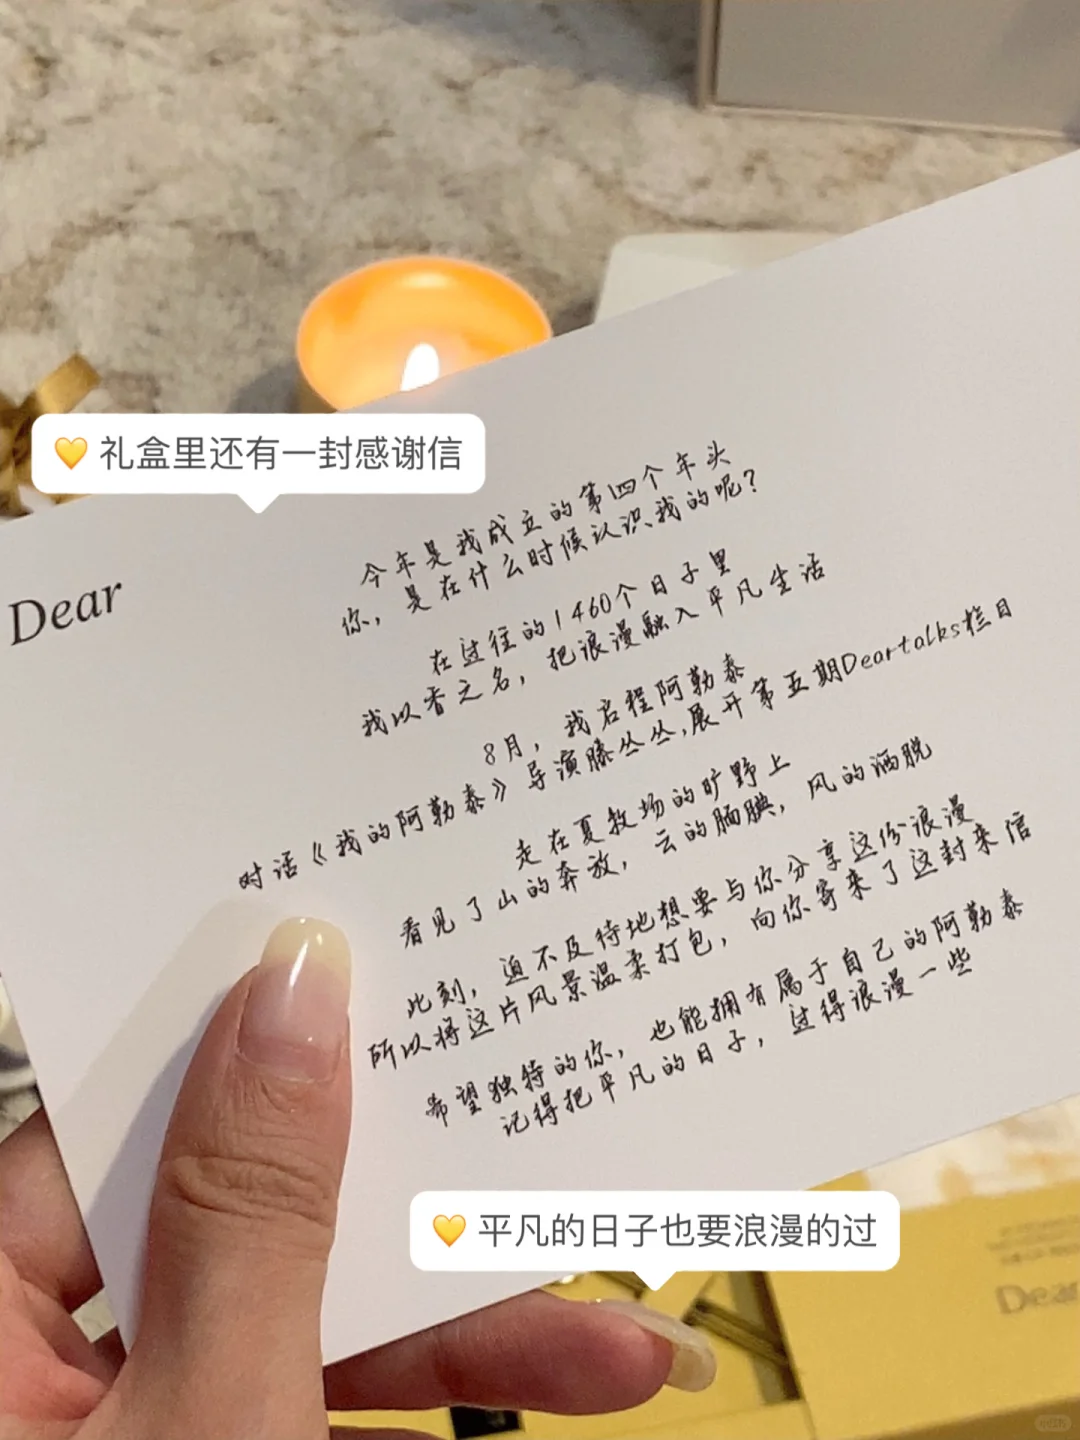 💛 礼盒里还有一封感谢信
Dear
今年是我成立的第四个年头
你，是在什么时候认识我的呢？
在过往的1460个日子里
我以香之名，把浪漫融入平凡生活
8月，我启程阿勒泰
对话《我的阿勒泰》导演滕丛丛，展开第五期Deartalks栏目
走在夏牧场的旷野上
看见了山的奔放，云的腼腆，风的洒脱
此刻，迫不及待地想要与你分享这份浪漫
所以将这片风景温柔打包，向你寄来了这封来信
希望独特的你，也能拥有属于自己的阿勒泰
记得把平凡的日子，过得浪漫一些
💛 平凡的日子也要浪漫的过
Dear
小红书